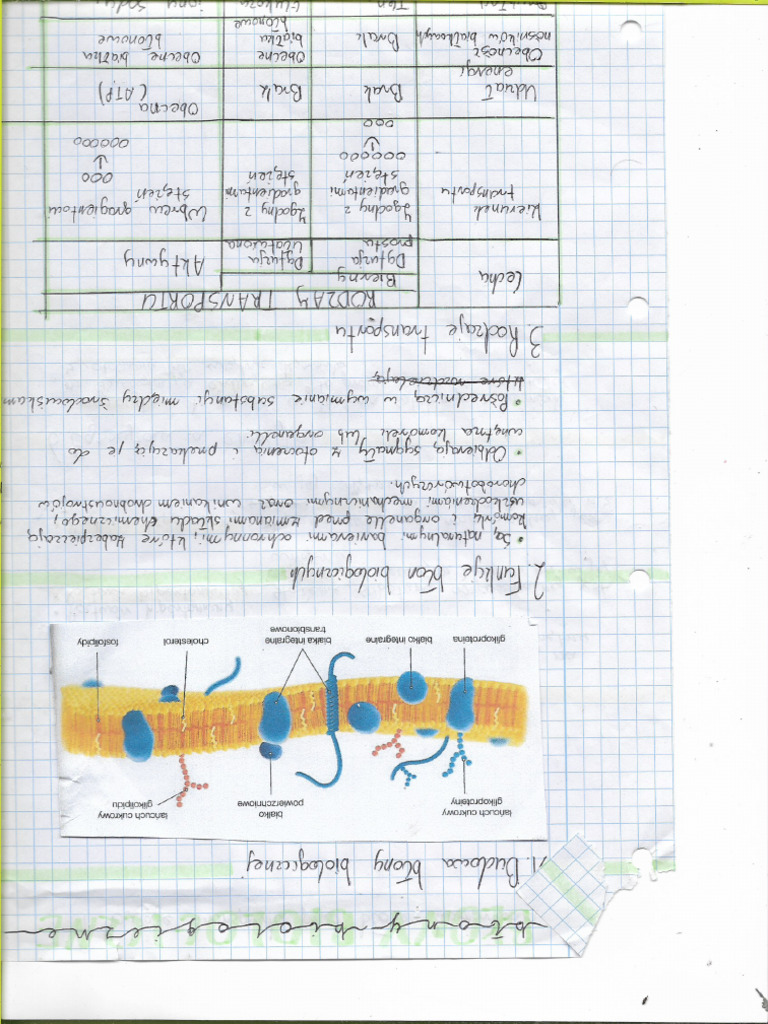 Błony biologiczne
1. Budowa błony biologicznej
łańcuch cukrowy
glikoproteiny
białko
powierzchniowe
łańcuch cukrowy
glikolipidu
glikoproteina
białko integralne
białka integralne
transbłonowe
cholesterol
fosfolipidy
2. Funkcje błon biologicznych
• Są naturalnymi barierami ochronnymi, które zabezpieczają
komórkę i organelle przed zmianami składu chemicznego,
uszkodzeniami mechanicznymi oraz wnikaniem drobnoustrojów
chorobotwórczych.
• Odbierają sygnały z otoczenia i przekazują je do
wnętrza komórki lub organelli
• Pośredniczą w wymianie substancji między środowiskam
które rozdzielają
3. Rodzaje transportu
Cecha
RODZAJ TRANSPORTU
Bierny
Aktywny
Dyfuzja
prosta
Dyfuzja
ułatwiona
Kierunek
transportu
Zgodny z
gradientami
stężeń
000000
↓
000
Zgodny z
gradientami
stężeń
Wbrew gragientowi
stężeń
000
↓
000000
Udział
energi
Brak
Brak
Obecna
(ATP)
Obecność
nośników białkowych
Brak
Obecne
białka
błonowe
Obecne białka
błonowe
Tlen
Glukoza
jony sodu